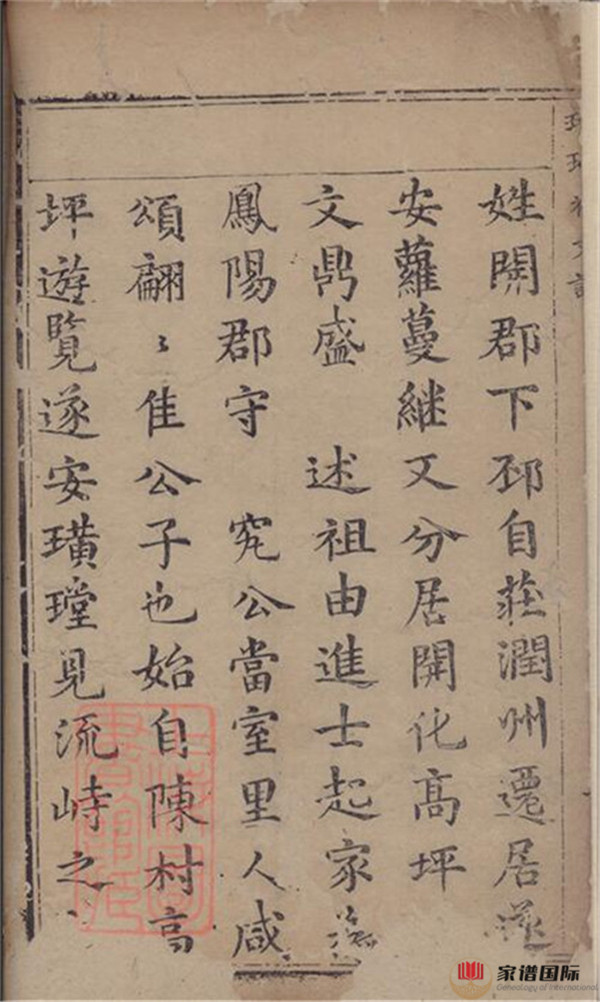 姓關郡下邳自莊潤州遷居遂
安蘿蔓継又分居開化高坪
文鼎盛 述祖由進士起家
鳳陽郡守 究公當室里人咸
頌翩〻佳公子也始自陳村高
坪遊覽遂安璜瑝見流峙之
家谱国际
Genealogy of International